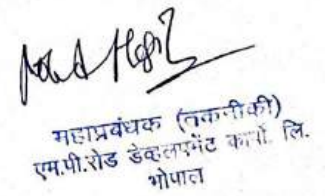 महाप्रबंधक (तकनीकी)
एम.पी.रोड डेव्हलपमेंट कार्पो. लि.
भोपाल